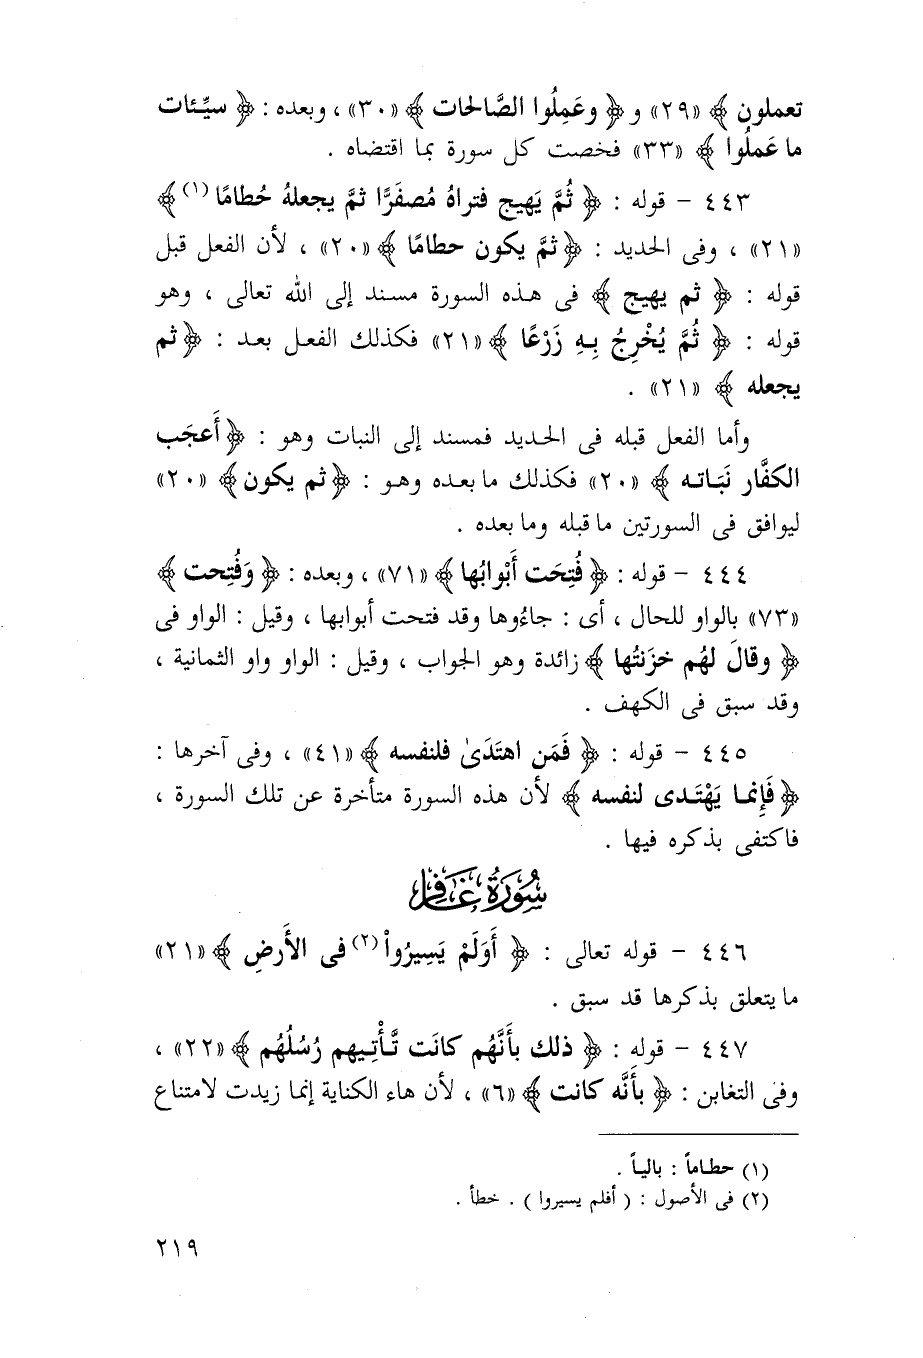 تعملون ﴾ «٢٩» و ﴿ وعَمِلُوا الصَّالحات ﴾ «٣٠» ، وبعده : ﴿ سيِّئات
ما عَملُوا ﴾ «٣٣» فخصت كل سورة بما اقتضاه .
٤٤٣ – قوله : ﴿ ثُمَّ يَهيج فتراهُ مُصفَرًّا ثمَّ يجعلهُ حُطامًا (١) ﴾
«٢١» ، وفى الحديد : ﴿ ثمَّ يكون حطامًا ﴾ «٢٠» ، لأن الفعل قبل
قوله : ﴿ ثم يهيج ﴾ فى هذه السورة مسند إلى الله تعالى ، وهو
قوله : ﴿ ثُمَّ يُخْرِجُ بِهِ زَرْعًا ﴾ «٢١» فكذلك الفعل بعد : ﴿ ثم
يجعله ﴾ «٢١» .
وأما الفعل قبله فى الحديد فمسند إلى النبات وهو : ﴿ أَعجَب
الكفَّار نَبَاته ﴾ «٢٠» فكذلك ما بعده وهو : ﴿ ثم يكون ﴾ «٢٠»
ليوافق فى السورتين ما قبله وما بعده .
٤٤٤ – قوله : ﴿ فُتِحَت أَبْوابُها ﴾ «٧١» ، وبعده : ﴿ وَفُتِحت ﴾
«٧٣» بالواو للحال ، أى : جاءُوها وقد فتحت أبوابها ، وقيل : الواو فى
﴿ وقالَ لهُم خزَنتُها ﴾ زائدة وهو الجواب ، وقيل : الواو واو الثمانية ،
وقد سبق فى الكهف .
٤٤٥ – قوله : ﴿ فَمَن اهتَدَىٰ فلنفسه ﴾ «٤١» ، وفى آخرها :
﴿ فَإِنما يَهْتَدى لنفسه ﴾ لأن هذه السورة متأخرة عن تلك السورة ،
فاكتفى بذكره فيها .
سُورَةُ غَافِل
٤٤٦ – قوله تعالى : ﴿ أَوَلَمْ يَسِيرُواْ (٢) فى الأَرضِ ﴾ «٢١»
ما يتعلق بذكرها قد سبق .
٤٤٧ – قوله : ﴿ ذلك بأَنَّهُم كانَت تَّأْتِيهم رُسُلُهُم ﴾ «٢٢» ،
وفى التغابن : ﴿ بأَنَّه كانت ﴾ «٦» ، لأن هاء الكناية إنما زيدت لامتناع
(١) حطاماً : بالياً .
(٢) فى الأصول : ( أفلم يسيروا ) . خطأ .
٢١٩